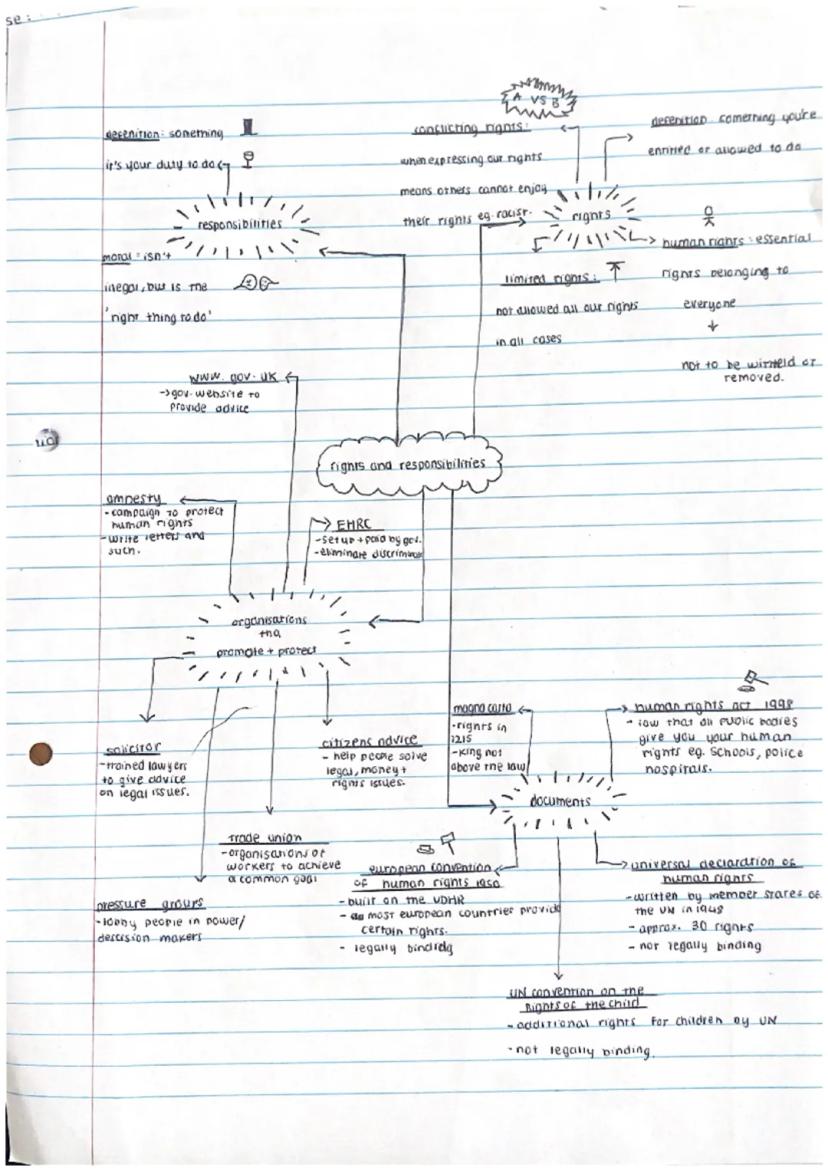 se:
A VS B
defenition: something
it's your duty to do
responsibilities
moral: isn't
inegal, but is the
'right thing to do'
conflicting rights:
when expressing our rights
means others cannot enjoy
their rights eg. racist.
defenition: something you're
entitled or allowed to do
rights
human rights: essential
rights belonging to
everyone
not to be witheld or
removed.
limited rights:
not allowed all our rights
in all cases
www.gov.uk
→gov. website to
provide advice
rights and responsibilities
amnesty
- campaign to protect
human rights
- write letters and
such.
EHRC
- set up + paid by gov.
- eliminate
organisations
tha
promote + protect
solicitor
- trained lawyers
to give advice
on legal issues.
citizens advice
- help people solve
legal, money +
rights issues.
trade union
- organisations of
workers to achieve
a common goal
pressure groups
- lobby people in power/
descision makers
magna carta
- rights in
1215
- king not
above the law
human rights act 1998
- law that all public bodies
give you your human
rights eg. schools, police
hospitals.
documents
european convention
of human rights 1950
- built on the UDHR
- most european countries provide
certain rights.
- legally bindidg
universal declaration of
human rights
- written by member states of
the UN in 1948
- approx. 30 rights
- not legally binding
UN convention on the
Rights of the child
- additional rights for children by UN
- not legally binding.